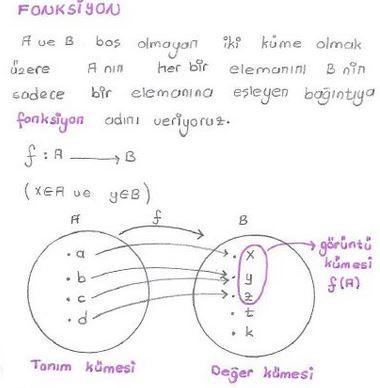 FONKSİYON
A ve B boş olmayan iki küme olmak
üzere A nın her bir elemanını B nin
sadece bir elemanına eşleyen bağıntıya
fonksiyon adını veriyoruz.
f : A → B
(x∈A ve y∈B)
A f B
a
b
c
d
x
y
z
t
k
görüntü
kümesi
f(A)
Tanım kümesi
Değer kümesi